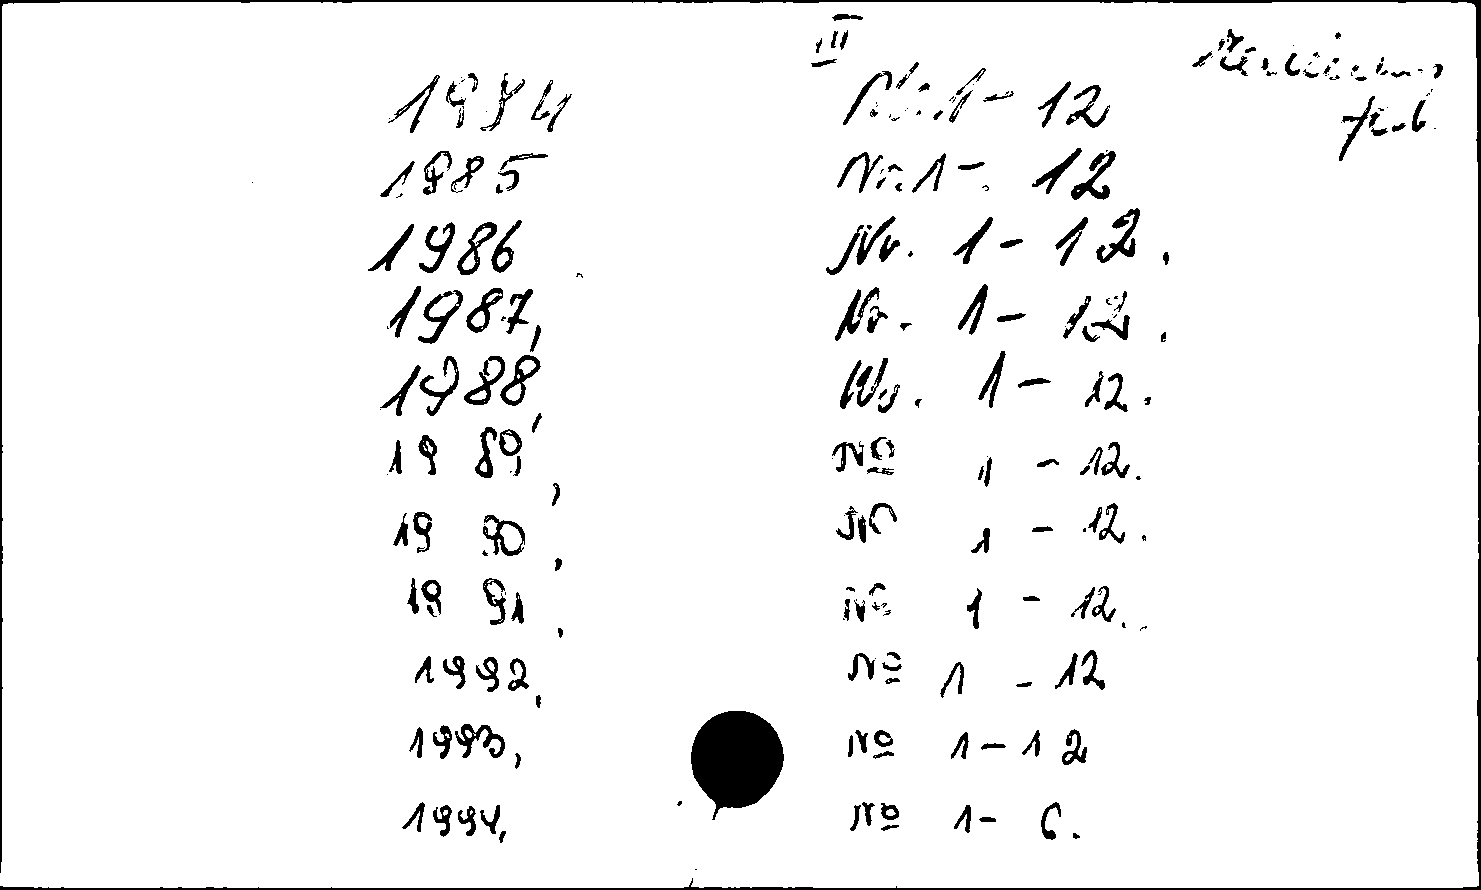 III
1984 Nr. 1 - 12
1985 Nr. 1 - 12
1986 Nr. 1 - 12.
1987, Nr. 1 - 12.
1988, Nr. 1 - 12.
1989, № 1 - 12.
1990, № 1 - 12.
1991, № 1 - 12.
1992, № 1 - 12
1993, № 1 - 12
1994, № 1 - 6.